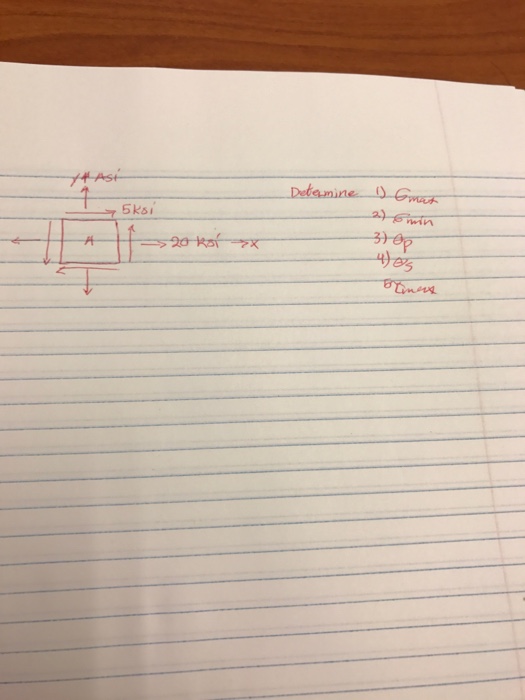 Asi
5ksi
A
20 ksi → x
Determine 1) σmax
2) σmin
3) θp
4) θs
5) τmax